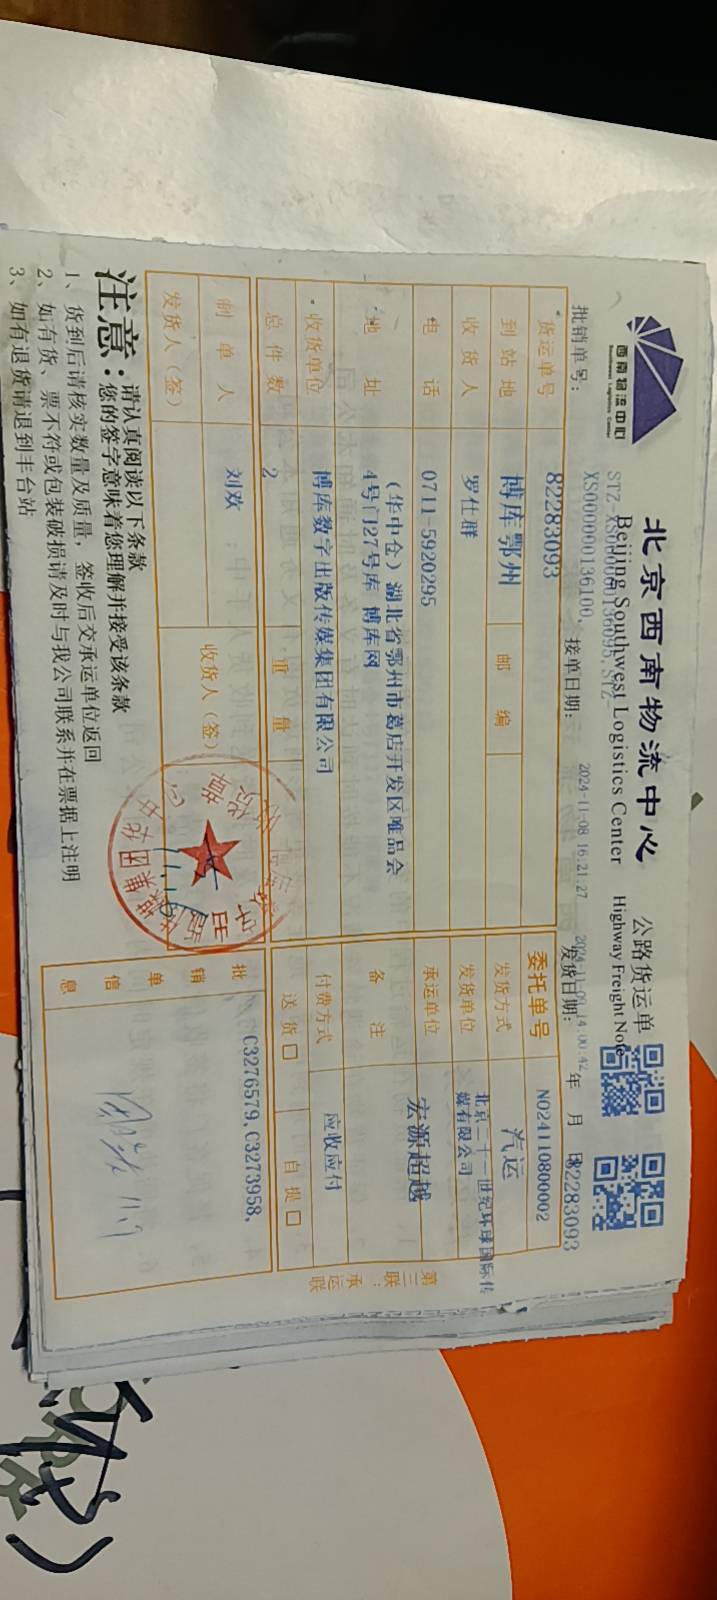 西南物流中心
Southwest Logistics Center
北京西南物流中心 公路货运单
Beijing Southwest Logistics Center Highway Freight Note
批销单号: STZ-XS0000000136095,STZ-
XS0000000136100, 接单日期: 2024-11-08 16:21:27 发货日期: 年 月 日 82283093
2024-11-09 14:00:42
货运单号 82283093 委托单号 NO24110800002
到站地 博库鄂州 邮编 发货方式 汽运
收货人 罗仕群 发货单位 北京二十一世纪环球国际传
媒有限公司
电话 0711-5920295 承运单位 宏源超越
地址 (华中仓)湖北省鄂州市葛店开发区唯品会
4号门27号库 博库网
备注
收货单位 博库数字出版传媒集团有限公司 付费方式 应收应付
总件数 2 重量 送货□ 自提□
制单人 刘欢 收货人(签)
发货人(签)
批销单信息 C3276579,C3273958,
第三联:承运联
收货章
注意:请认真阅读以下条款
您的签字意味着您理解并接受该条款
1、货到后请核实数量及质量,签收后交承运单位返回
2、如有货、票不符或包装破损请及时与我公司联系并在票据上注明
3、如有退货请退到丰台站